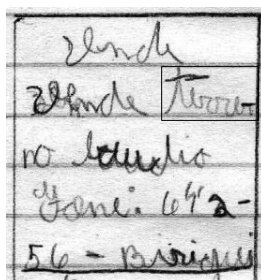 Vende
Vende Terre
no Claudio
Fone: 642-
56 - Birigui